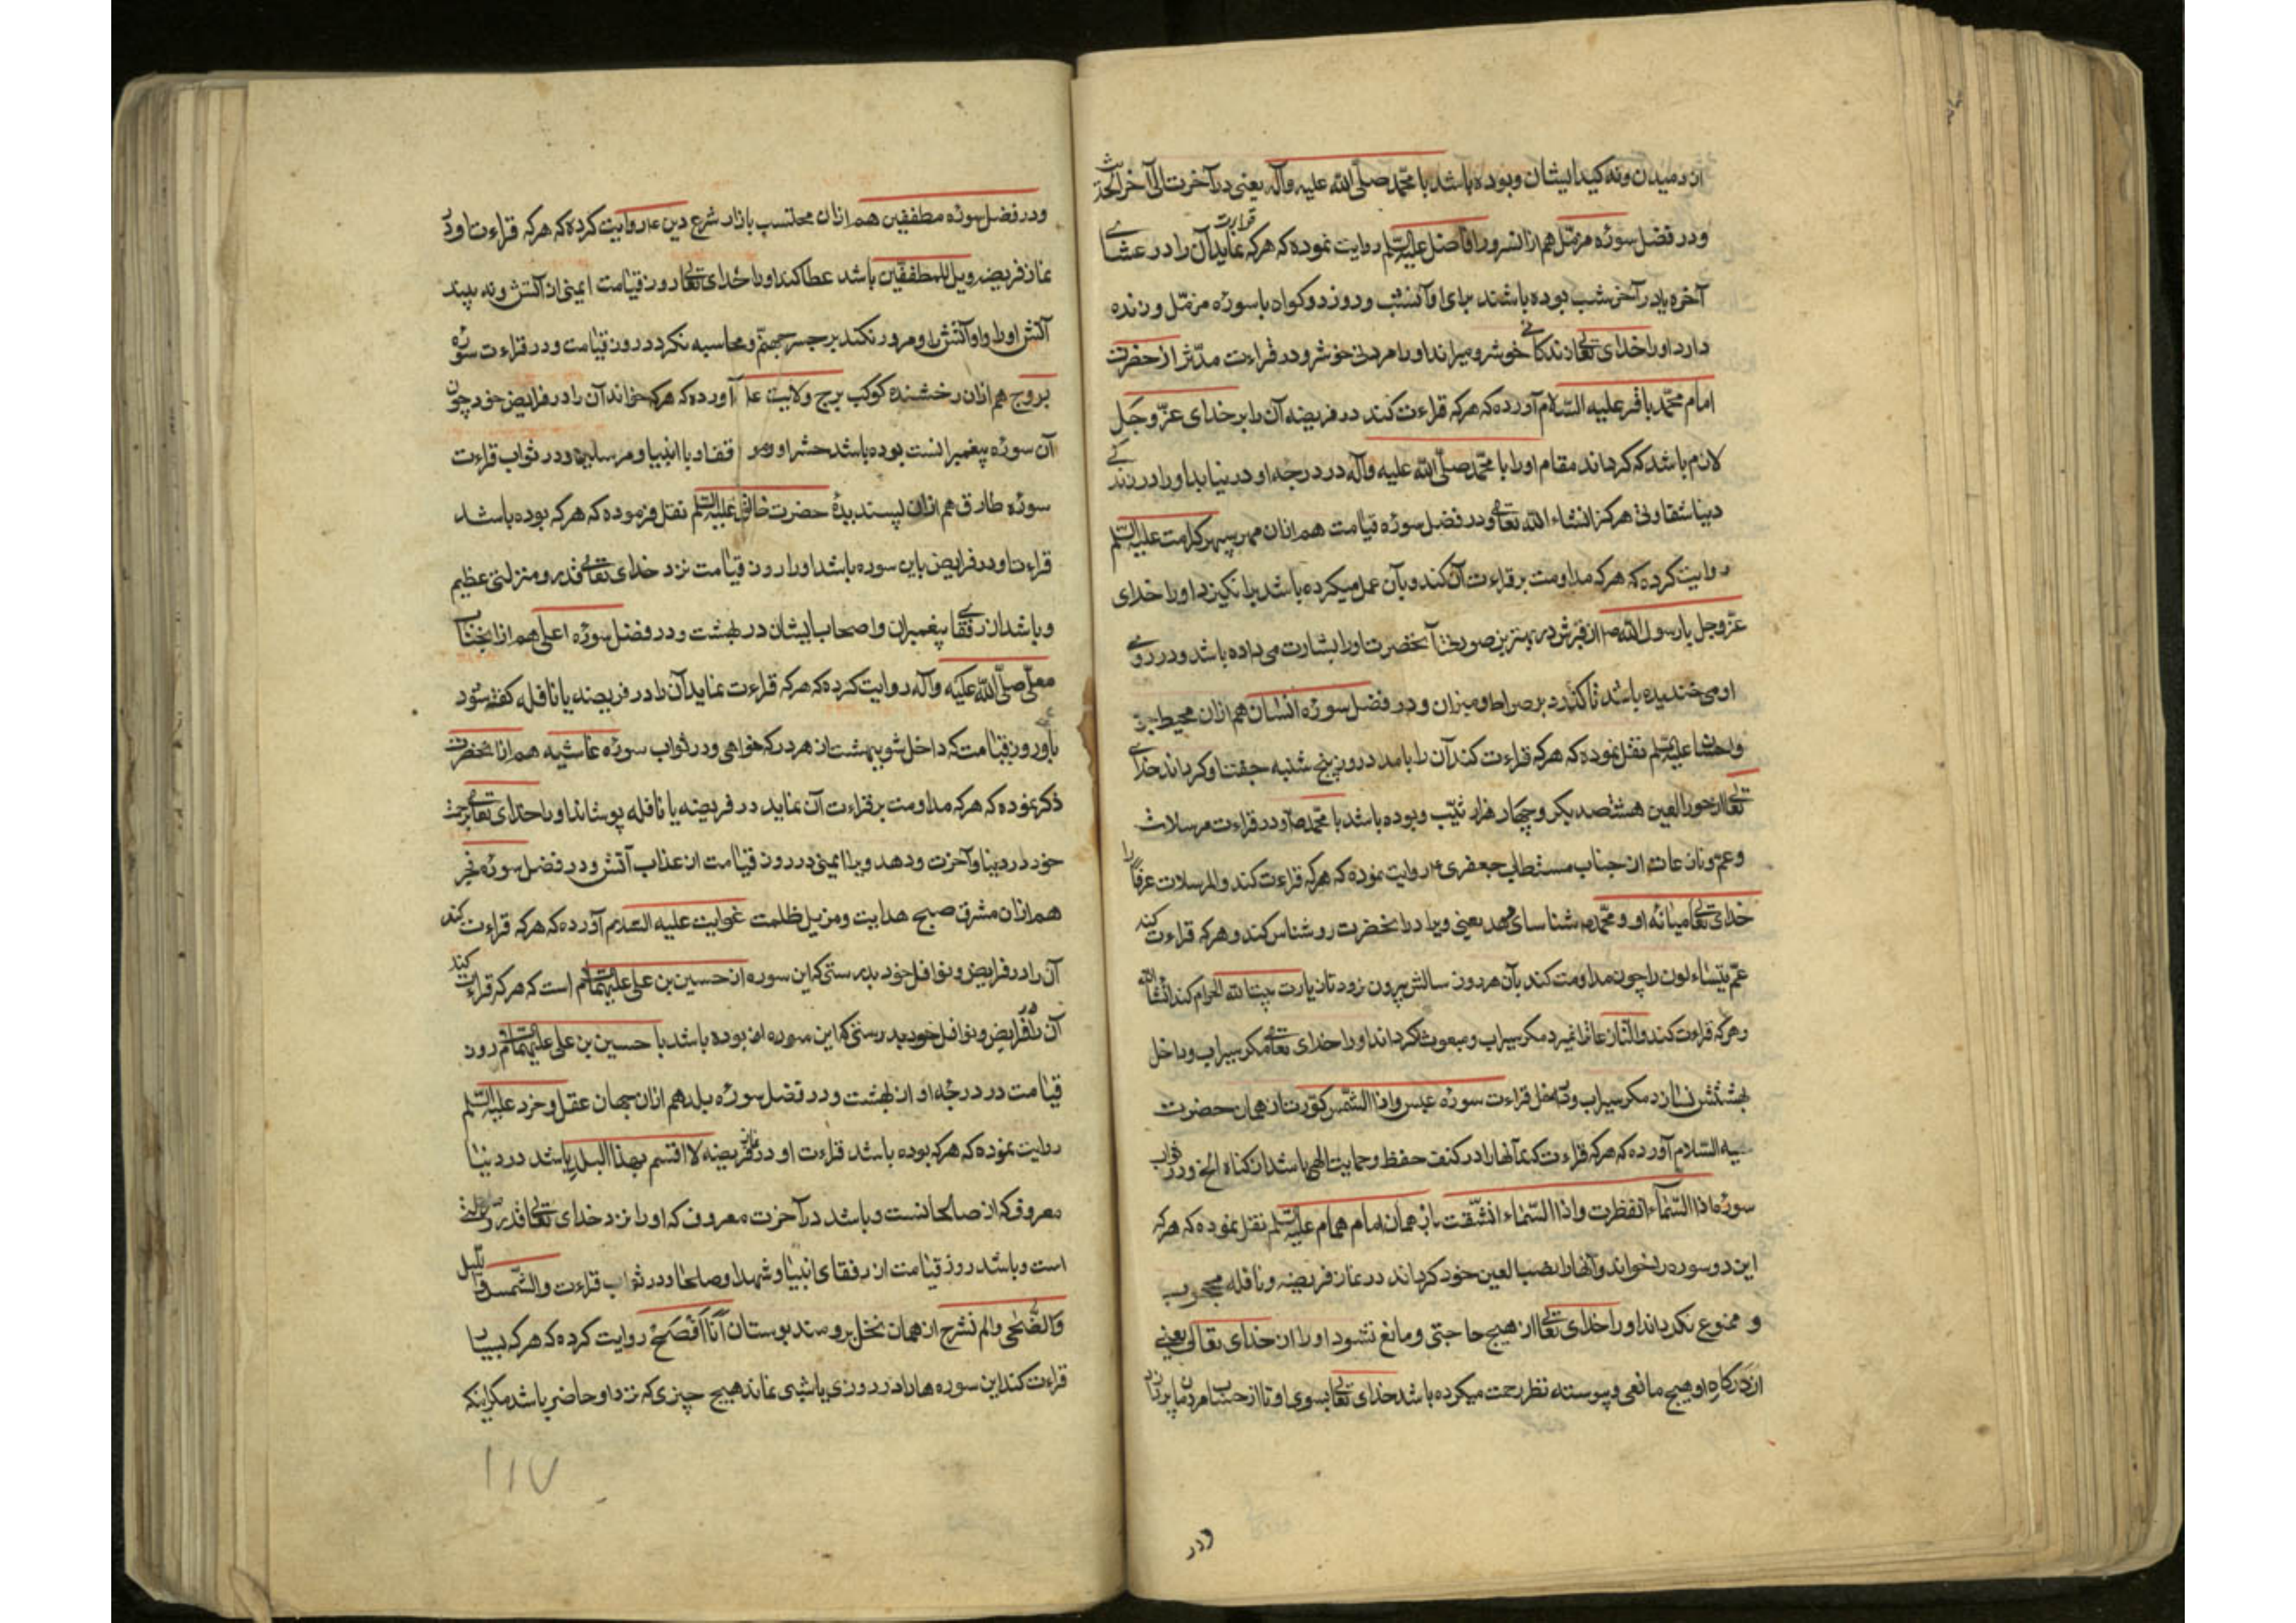 از دمیدن ونه کید ایشان وبوده باشد با محمّد صلّی الله علیه وآله یعنی در آخرت الی آخر الحدیث
ودر فضل سوره مزمّل هم از انسرور افاضل علیه السّلم روایت نموده که هرکه قراءت نماید آن را در عشای
آخره یا در آخر شب بوده باشند برای او آنشب وروز دو کواه با سوره مزمّل وزنده
دارد او را خدای تعالی زندکانی خوش ومیراند او را مردنی خوش ودر قراءت مدّثر از حضرت
امام محمّد باقر علیه السّلام آورده که هرکه قراءت کند در فریضه آن را بر خدای عزّ وجلّ
لازم باشد که کرداند مقام او را با محمّد صلّی الله علیه وآله در درجه او ودر نیابد او را در زندکی
دنیا شقاوتی هرکز انشاء الله تعالی ودر فضل سوره قیامت هم ازان مهر سپهر کرامت علیه السّلم
روایت کرده که هرکه مداومت بر قراءت آن کند وبآن عمل میکرده باشد برانکیزد او را خدای
عزّ وجل با رسول الله ص از قبرش در بهترین صورتها آنحضرت او را بشارت می داده باشد ودر روی
او می خندیده باشد تا کذرد بر صراط ومیزان ودر فضل سوره انسان هم ازان محیط برّ
واحسان علیه السّلم نقل نموده که هرکه قراءت کند آن را بامداد روز پنج شنبه جفت او کرداند خدای
تعالی از حور العین هشتصد بکر وچهار هزار ثیّب وبوده باشد با محمّد ص ودر قراءت مرسلات
وعمّ ونازعات از جناب مستطاب جعفری ع روایت نموده که هرکه قراءت کند والمرسلات عرفاً را
خدای تعالی میانه او ومحمّد ص شناسای دهد یعنی ویرا در آنحضرت روشناس کند وهرکه قراءت کند
عمّ یتساءلون را چون مداومت کند بآن هر روز سالش بیرون نرود تا زیارت بیت الله الحرام کند انشا الله
وهرکه قراءت کند والنّازعات را نمیرد مکر سیراب ومبعوث نکرداند او را خدای تعالی مکر سیراب وداخل
بهشتش نسازد مکر سیراب ودر فضل قراءت سوره عبس واذا الشّمس کوّرت از همان حضرت
علیه السّلام آورده که هرکه قراءت کند آنها را در کنف حفظ وحمایت الهی باشد از کناه الخ ودر ثواب
سوره اذا السّماء انفطرت واذا السّماء انشقّت از همان امام همام علیه السّلم نقل نموده که هرکه
این دو سوره را بخواند وآنها را نصب العین خود کرداند در نماز فریضه ونافله محجوب
و ممنوع نکرداند او را خدای تعالی از هیچ حاجتی ومانع نشود او را از خدای تعالی یعنی
از درکاه او هیچ مانعی وپیوسته نظر رحمت میکرده باشد خدای تعالی بسوی او تا از حساب مردمان پردازد
ودر
ودر فضل سوره مطففین هم ازان محتسب بازار شرع دین ع روایت کرده که هرکه قراءت او در
نماز فریضه ویل للمطففین باشد عطا کند او را خدای تعالی روز قیامت ایمنی از آتش ونه بیند
آتش او را واو آتش را ومرور نکند بر جسر جهنّم ومحاسبه نکردد روز قیامت ودر قراءت سوره
بروج هم ازان رخشنده کوکب برج ولایت ع آورده که هرکه خواند آن را در فرایض خود چون
آن سوره پیغمبرانست بوده باشد حشر او و قف او با انبیا ومرسلین ودر ثواب قراءت
سوره طارق هم ازان پسندیدهٔ حضرت خالق علیه السّلم نقل فرموده که هرکه بوده باشد
قراءت او در فرایض باین سوره باشد او را روز قیامت نزد خدای تعالی قدر ومنزلتی عظیم
وباشد از رفقای پیغمبران واصحاب ایشان در بهشت ودر فضل سوره اعلی هم از انجناب
معلّی صلّی الله علیه وآله روایت کرده که هرکه قراءت نماید آن را در فریضه یا نافله کفته شود
باو روز قیامت که داخل شو ببهشت از هر در که خواهی ودر ثواب سوره غاشیه هم از انحضرت
ذکر نموده که هرکه مداومت بر قراءت آن نماید در فریضه یا نافله پوشاند او را خدای تعالی برحمت
خود در دنیا وآخرت ودهد ویرا ایمنی در روز قیامت از عذاب آتش ودر فضل سوره فجر
هم ازان مشرق صبح هدایت ومزیل ظلمت غوایت علیه السّلام آورده که هرکه قراءت کند
آن را در فرایض ونوافل خود بدرستی که این سوره از حسین بن علی علیهما السّلم است که هرکه قراءت کند
آن را در فرایض ونوافل خود بدرستی که این سوره او بوده باشد با حسین بن علی علیهما السّلم روز
قیامت در درجه او از بهشت ودر فضل سوره بلد هم ازان سبحان عقل وخرد علیه السّلم
روایت نموده که هرکه بوده باشد قراءت او در نماز فریضه لا اقسم بهذا البلد باشد در دنیا
معروف که از صالحانست وباشد در آخرت معروف که او را نزد خدای تعالی قدر ومنزلتی
است وباشد روز قیامت از رفقای انبیا وشهدا وصلحا ودر ثواب قراءت والشّمس واللّیل
والضّحی والم نشرح از همان نخل برومند بوستان أنا أفصح روایت کرده که هرکه بسیار
قراءت کند این سوره ها را در روزی یا شبی نماند هیچ چیزی که نزد او حاضر باشد مکر اینکه
۱۱۷